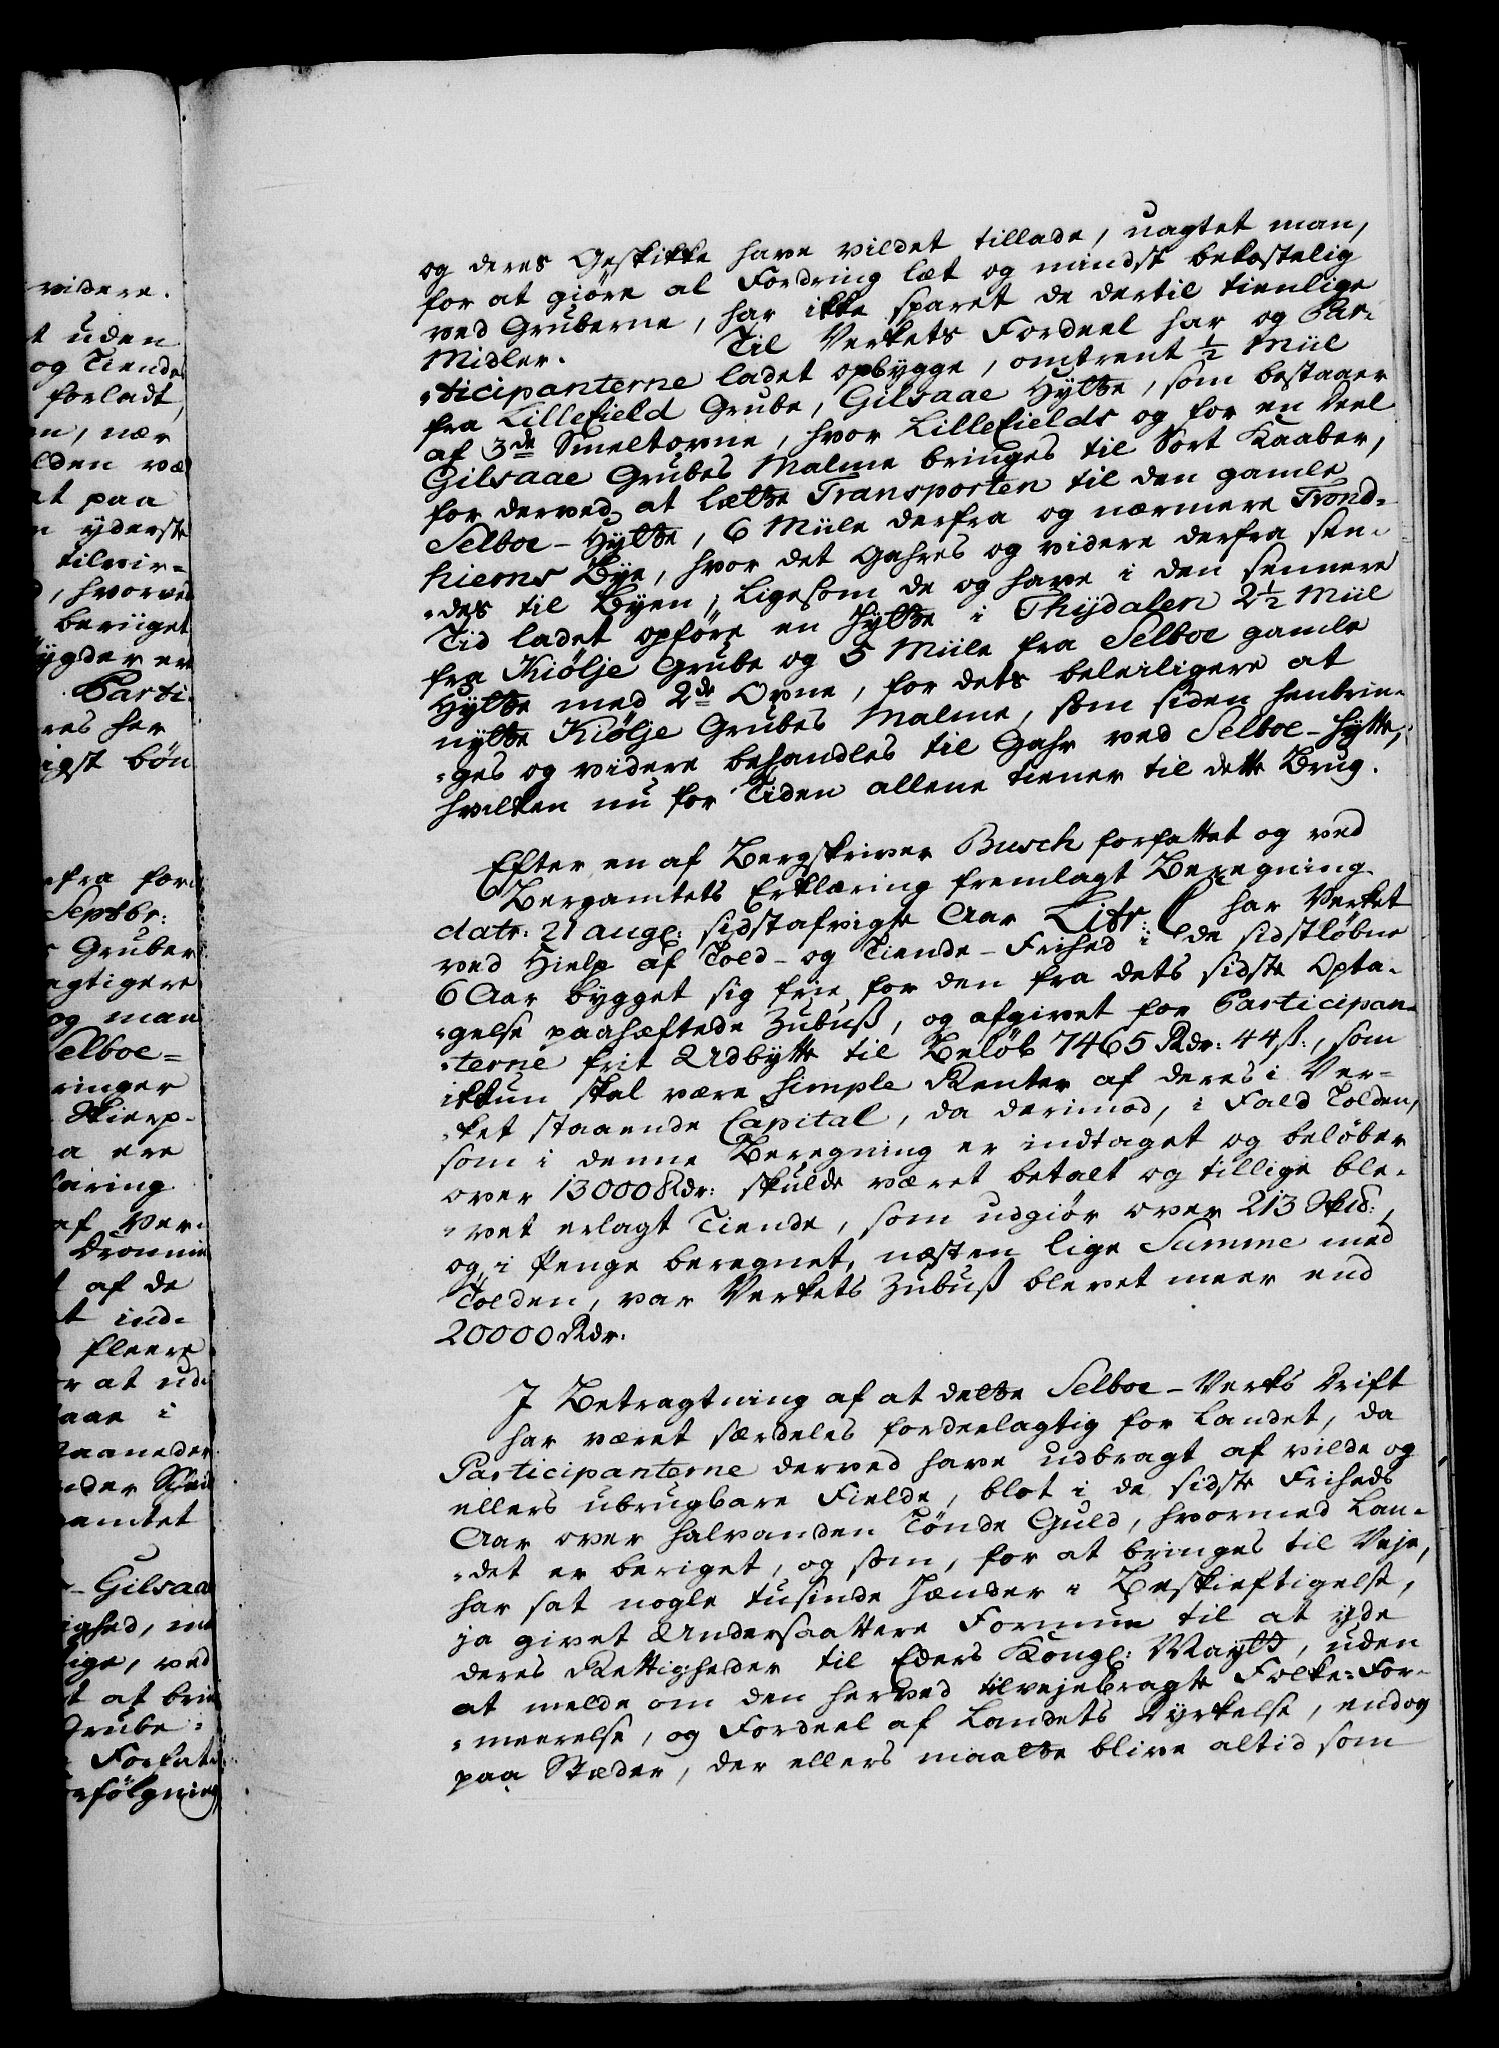 videre.
t uden
og Tiendes
forladt,
n, nær
lden væ
at paa
n yderste
tilvir-
d, hvorved
beriiget
ygder er
Parti-
res her
igst bøn
fra for
Septbr:
Gruber
agtigere
og man
Selboe-
ringer
Skierp-
a ere
laring
af Ver-
Dronnin
t af de
t ind-
fleere
r at ud-
aar i
aaneder
amtet
- Gilsaa
ighed, in
ige, ved
t at brin
Grube-
Forfat-
efölgning
og deres Geskikke have vildet tillade, uagtet man,
for at giöre al Fordring læt og mindst bekostelig
ved Gruberne, har ikke sparet de dertil tienlige
Midler. Til Verkets Fordeel har og Par-
-ticipanterne ladet opbygge, omtrent ½ Miil
fra Lillefield Grube, Gilsaae Hytte, som bestaaer
af 3de Smeltovne, hvor Lillefields og for en Deel
Gilsaae Grubes Malme bringes til Sort Kaaber,
for derved at lætte Transporten til den gamle
Selboe-Hytte, 6 Miile derfra og nærmere Trond-
hiems Bye, hvor det Gahres og videre derfra sen-
-des til Byen; ligesom de og have i den sennere
Tid ladet opföre en Hytte i Thydalen 2½ Miil
fra Kiölje Grube og 5 Miile fra Selboe gamle
Hytte med 2de Ovne, for dets beleiligere at
nytte Kiölje Grubes Malme, som siden henbrin-
-ges og videre behandles til Gahr ved Selboe-Hytte,
hvilken nu for Tiden allene tiener til dette Brug.
Efter en af Bergskriver Busch forfattet og ved
Bergamtets Erklæring fremlagt Beregning
datr: 21 aug: sidstafvigte Aar Litr: C har Verket
ved Hielp af Told- og Tiende-Frihed i de sidstløbne
6 Aar bygget sig frie for den fra dets sidste Opta-
-gelse paahæftede Zubuß, og afgivet for Participan-
-terne frit Udbytte til Beløb 7465 Rdr: 44 ß:, som
ikkun skal være simple Renter af deres i Ver-
-ket staaende Capital, da derimod, i Fald Tolden,
som i denne Beregning er indtaget og beløber
over 13000 Rdr: skulde været betalt og tillige ble-
-vet erlagt Tiende, som udgiör over 213 Skd:,
og i Penge beregnet, næsten lige Summe med
Tolden, var Verkets Zubuß blevet meer end
20000 Rdr.
I Betragtning af at dette Selboe-Verks Drift
har været særdeles fordeelagtig for Landet, da
Participanterne derved have udbragt af vilde og
ellers ubrugbare Fielde, blot i de sidste Friheds
Aar over halvanden Tönde Guld, hvormed Lan-
-det er beriget, og som, for at bringes til Veje,
har sat nogle tusinde Hænder i Beskieftigelse,
ja givet Undersaattere Formue til at yde
deres Rettigheder til Eders Kongl: Mayts, uden
at melde om den herved tilvejebragte Folke-For-
-meerelse, og Fordeel af Landets Dyrkelse, endog
paa Stæder, der ellers maatte blive altid som